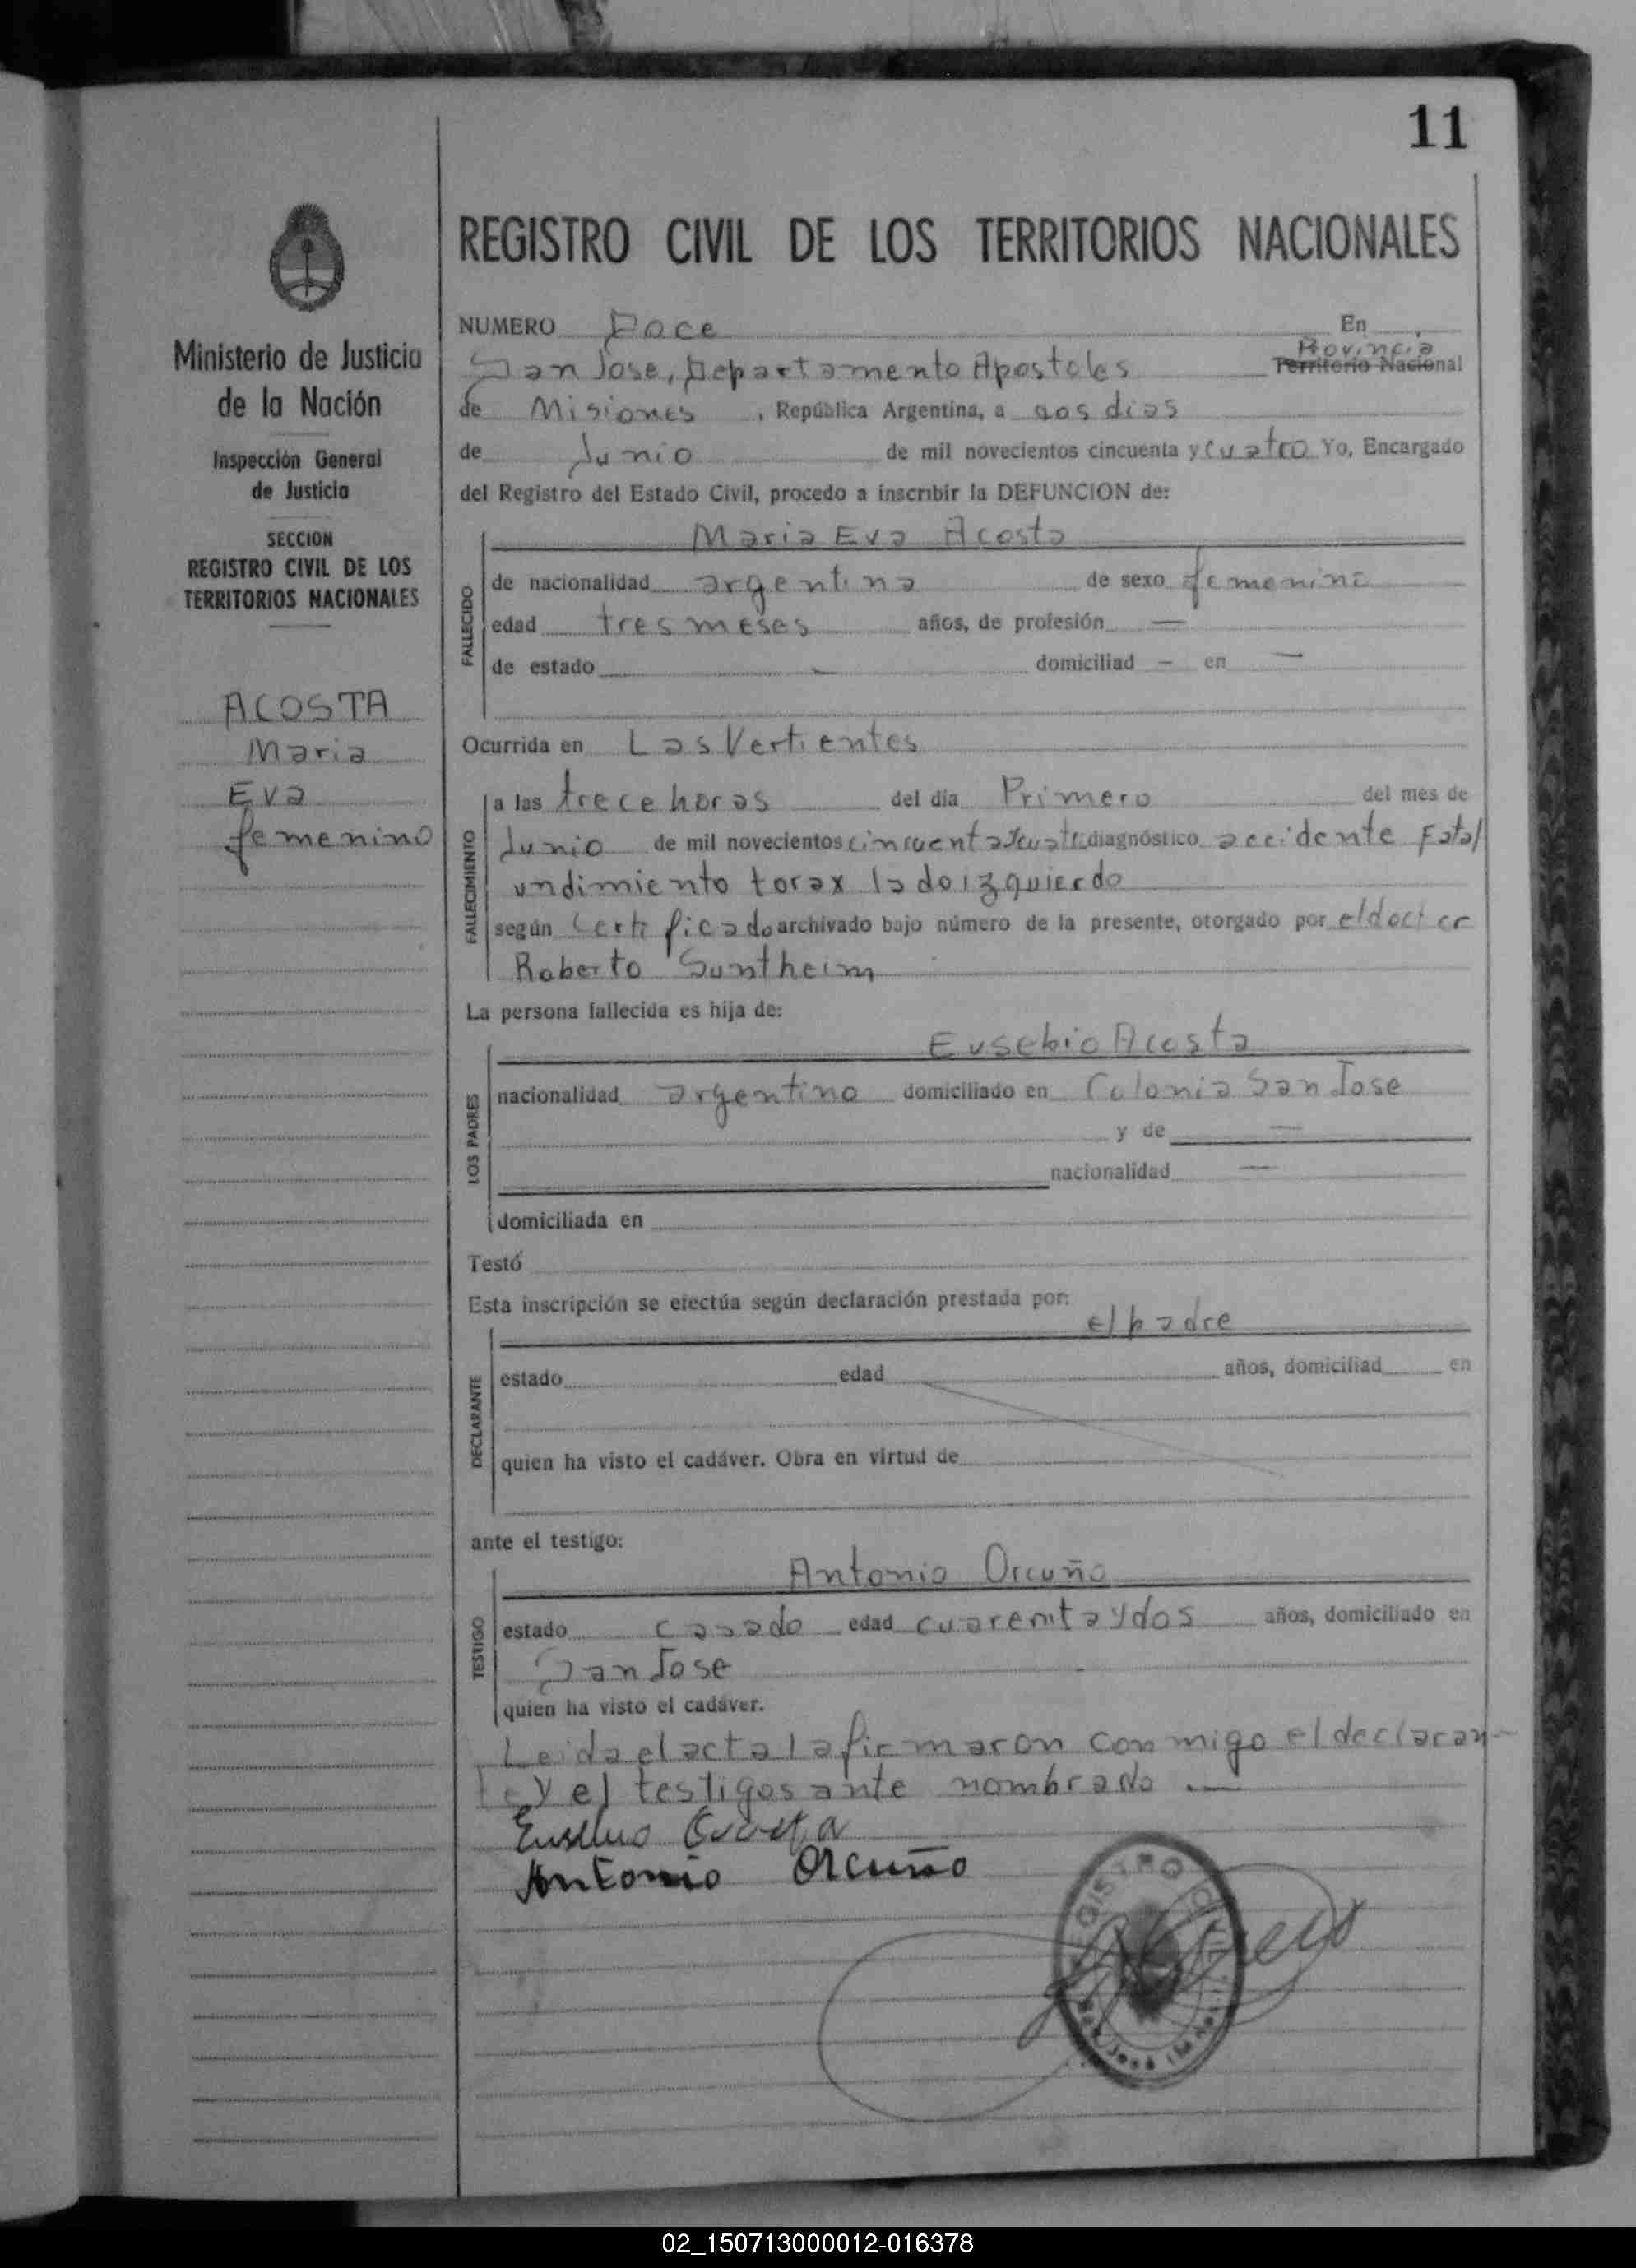 11
REGISTRO CIVIL DE LOS TERRITORIOS NACIONALES
Ministerio de Justicia
de la Nación
Inspección General
de Justicia
SECCION
REGISTRO CIVIL DE LOS
TERRITORIOS NACIONALES
ACOSTA
Maria
Eva
femenino
NUMERO Doce En
San Jose, Departamento Apostoles Provincia Territorio Nacional
de Misiones , República Argentina, a dos dias
de Junio de mil novecientos cincuenta y cuatro Yo, Encargado
del Registro del Estado Civil, procedo a inscribir la DEFUNCION de:
Maria Eva Acosta
FALLECIDO
de nacionalidad argentina de sexo femenino
edad tres meses años, de profesión —
de estado — domiciliad — en —
Ocurrida en Las Vertientes
FALLECIMIENTO
a las trece horas del día Primero del mes de
Junio de mil novecientos cincuenta y cuatro diagnóstico accidente Fatal
undimiento torax lado izquierdo
según Certificado archivado bajo número de la presente, otorgado por el doctor
Roberto Suntheim
La persona fallecida es hija de:
Eusebio Acosta
LOS PADRES
nacionalidad argentino domiciliado en Colonia San Jose
y de —
nacionalidad —
domiciliada en
Testó
Esta inscripción se efectúa según declaración prestada por:
el padre
DECLARANTE
estado edad años, domiciliad en
quien ha visto el cadáver. Obra en virtud de
ante el testigo:
Antonio Orcuño
TESTIGO
estado casado edad cuarentaydos años, domiciliado en
San Jose
quien ha visto el cadáver.
Leida el acta la firmaron conmigo el declaran-
te y el testigos ante nombrado —
Eusebio Acosta
Antonio Orcuño
REGISTRO CIVIL
San José
02_150713000012-016378